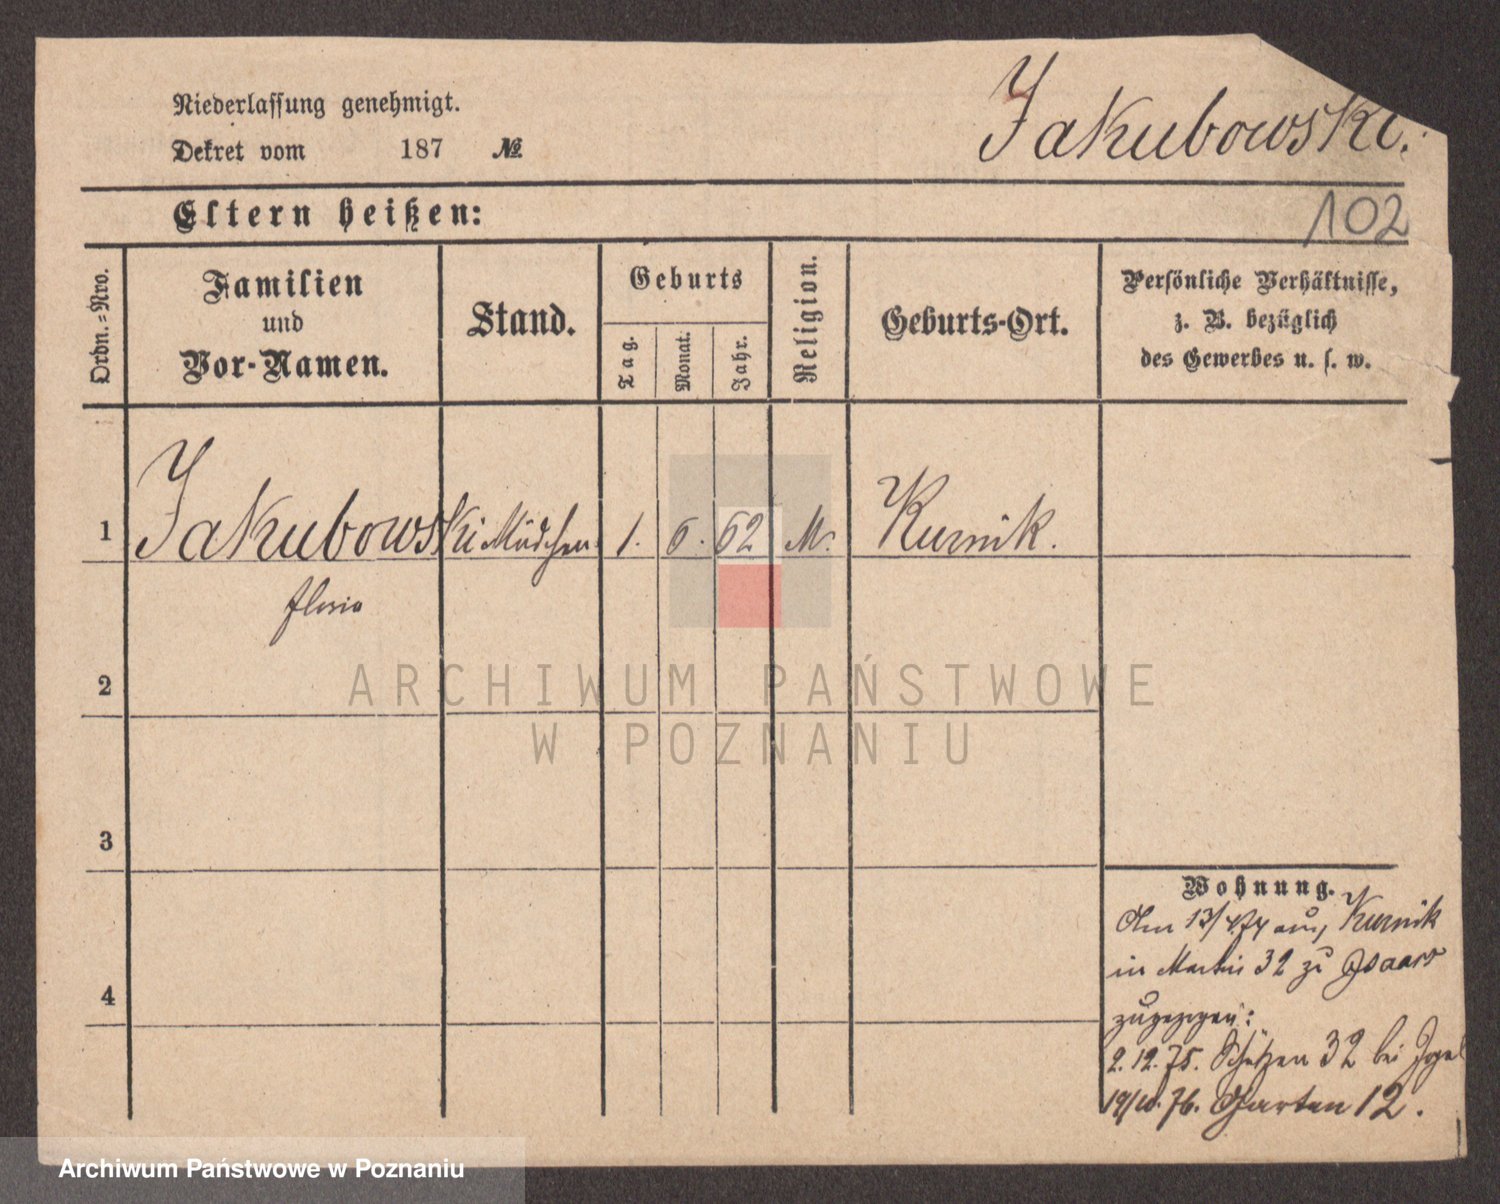 Niederlassung genehmigt.
Dekret vom 187 №
Jakubowski.
Eltern heißen:
102
Ordn.-Nro.
Familien
und
Vor-Namen.
Stand.
Geburts
Tag.
Monat.
Jahr.
Religion.
Geburts-Ort.
Persönliche Verhältnisse,
z. B. bezüglich
des Gewerbes u. s. w.
1 Jakubowski Mädchen 1. 6. 62 M. Kurnik.
2
3
4
Wohnung.
Am 13/ aus Kurnik
in Martin 32 zu
zugezogen:
2.12.75. Schützen 32 bei
76. Garten 12.
ARCHIWUM PAŃSTWOWE
W POZNANIU
Archiwum Państwowe w Poznaniu